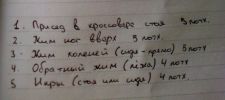 1. Присед в кроссовере стоя 5 подх.
2. Жим ног вверх 5 подх.
3. Жим коленей (сидя - прямо) 5 подх
4. Обратный жим (лёжа) 4 подх
5 Икры (стоя или сидя) 4 подх.